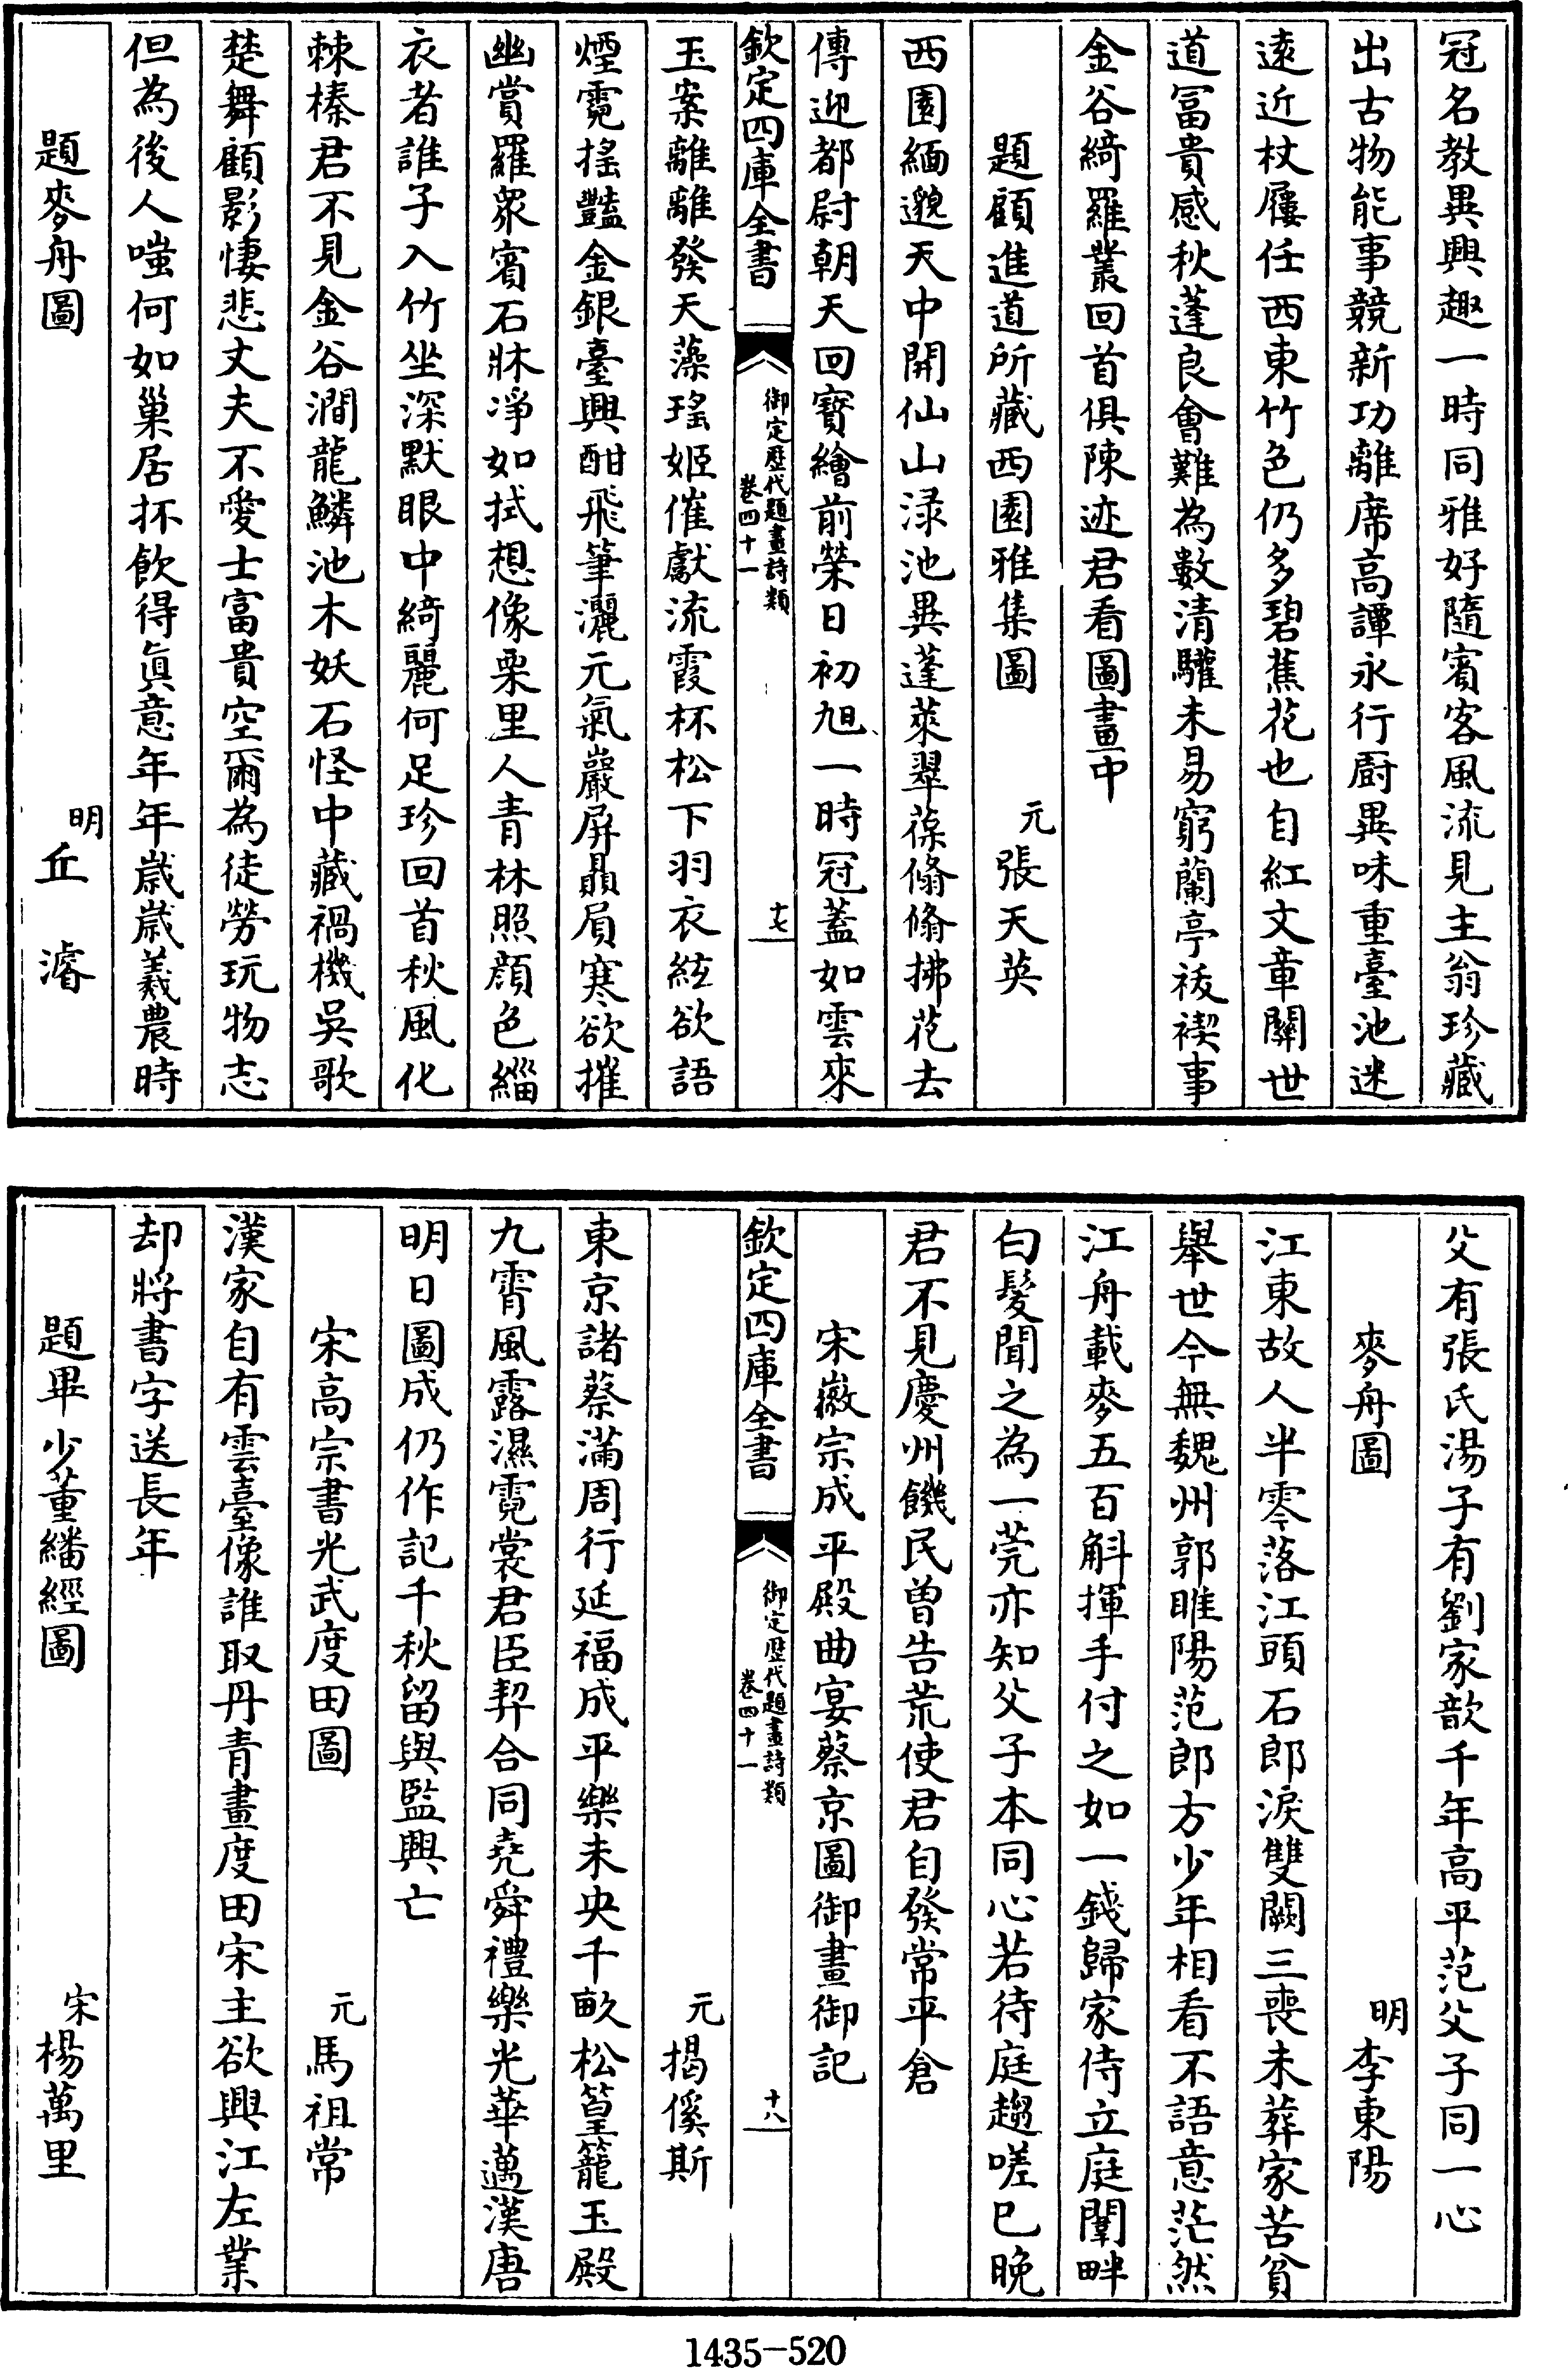 冠名教異興趣一時同雅好隨賓客風流見主翁珍藏
出古物能事競新功離席高譚永行厨異味重臺池迷
遠近杖屨任西東竹色仍多碧蕉花也自紅文章關世
道冨貴感秋蓬良會難為數清驩未易窮蘭亭祓禊事
金谷綺羅叢回首俱陳迹君看圖畫中
題顧進道所藏西園雅集圖
元張天英
西園緬邈天中開仙山渌池異蓬萊翠葆翛翛拂花去
傳迎都尉朝天回寳繪前榮日初旭一時冠蓋如雲來
欽定四庫全書
御定歴代題畫詩類
卷四十一
十七
玉案離離發天藻瑤姬催獻流霞杯松下羽衣絃欲語
煙霓搖豔金銀臺興酣飛筆灑元氣巖屏贔屓寒欲摧
幽賞羅衆賓石牀凈如拭想像栗里人青林照顔色緇
衣者誰子入竹坐深默眼中綺麗何足珍回首秋風化
棘榛君不見金谷澗龍鱗池木妖石怪中藏禍機吳歌
楚舞顧影悽悲丈夫不愛士富貴空爾為徒勞玩物志
但為後人嗤何如巢居抔飲得眞意年年歲歲羲農時
題麥舟圖
明丘濬
父有張氏湯子有劉家歆千年高平范父子同一心
麥舟圖
明李東陽
江東故人半零落江頭石郎淚雙闕三喪未葬家苦貧
舉世今無魏州郭睢陽范郎方少年相看不語意茫然
江舟載麥五百斛揮手付之如一錢歸家侍立庭闈畔
白髮聞之為一莞亦知父子本同心若待庭趨嗟已晚
君不見慶州饑民曾告荒使君自發常平倉
宋徽宗成平殿曲宴蔡京圖御畫御記
欽定四庫全書
御定歴代題畫詩類
卷四十一
十八
元揭傒斯
東京諸蔡滿周行延福成平樂未央千畝松篁籠玉殿
九霄風露濕霓裳君臣契合同堯舜禮樂光華邁漢唐
明日圖成仍作記千秋留與監興亡
宋高宗書光武度田圖
元馬祖常
漢家自有雲臺像誰取丹青畫度田宋主欲興江左業
却將書字送長年
題畢少董繙經圖
宋楊萬里
1435-520